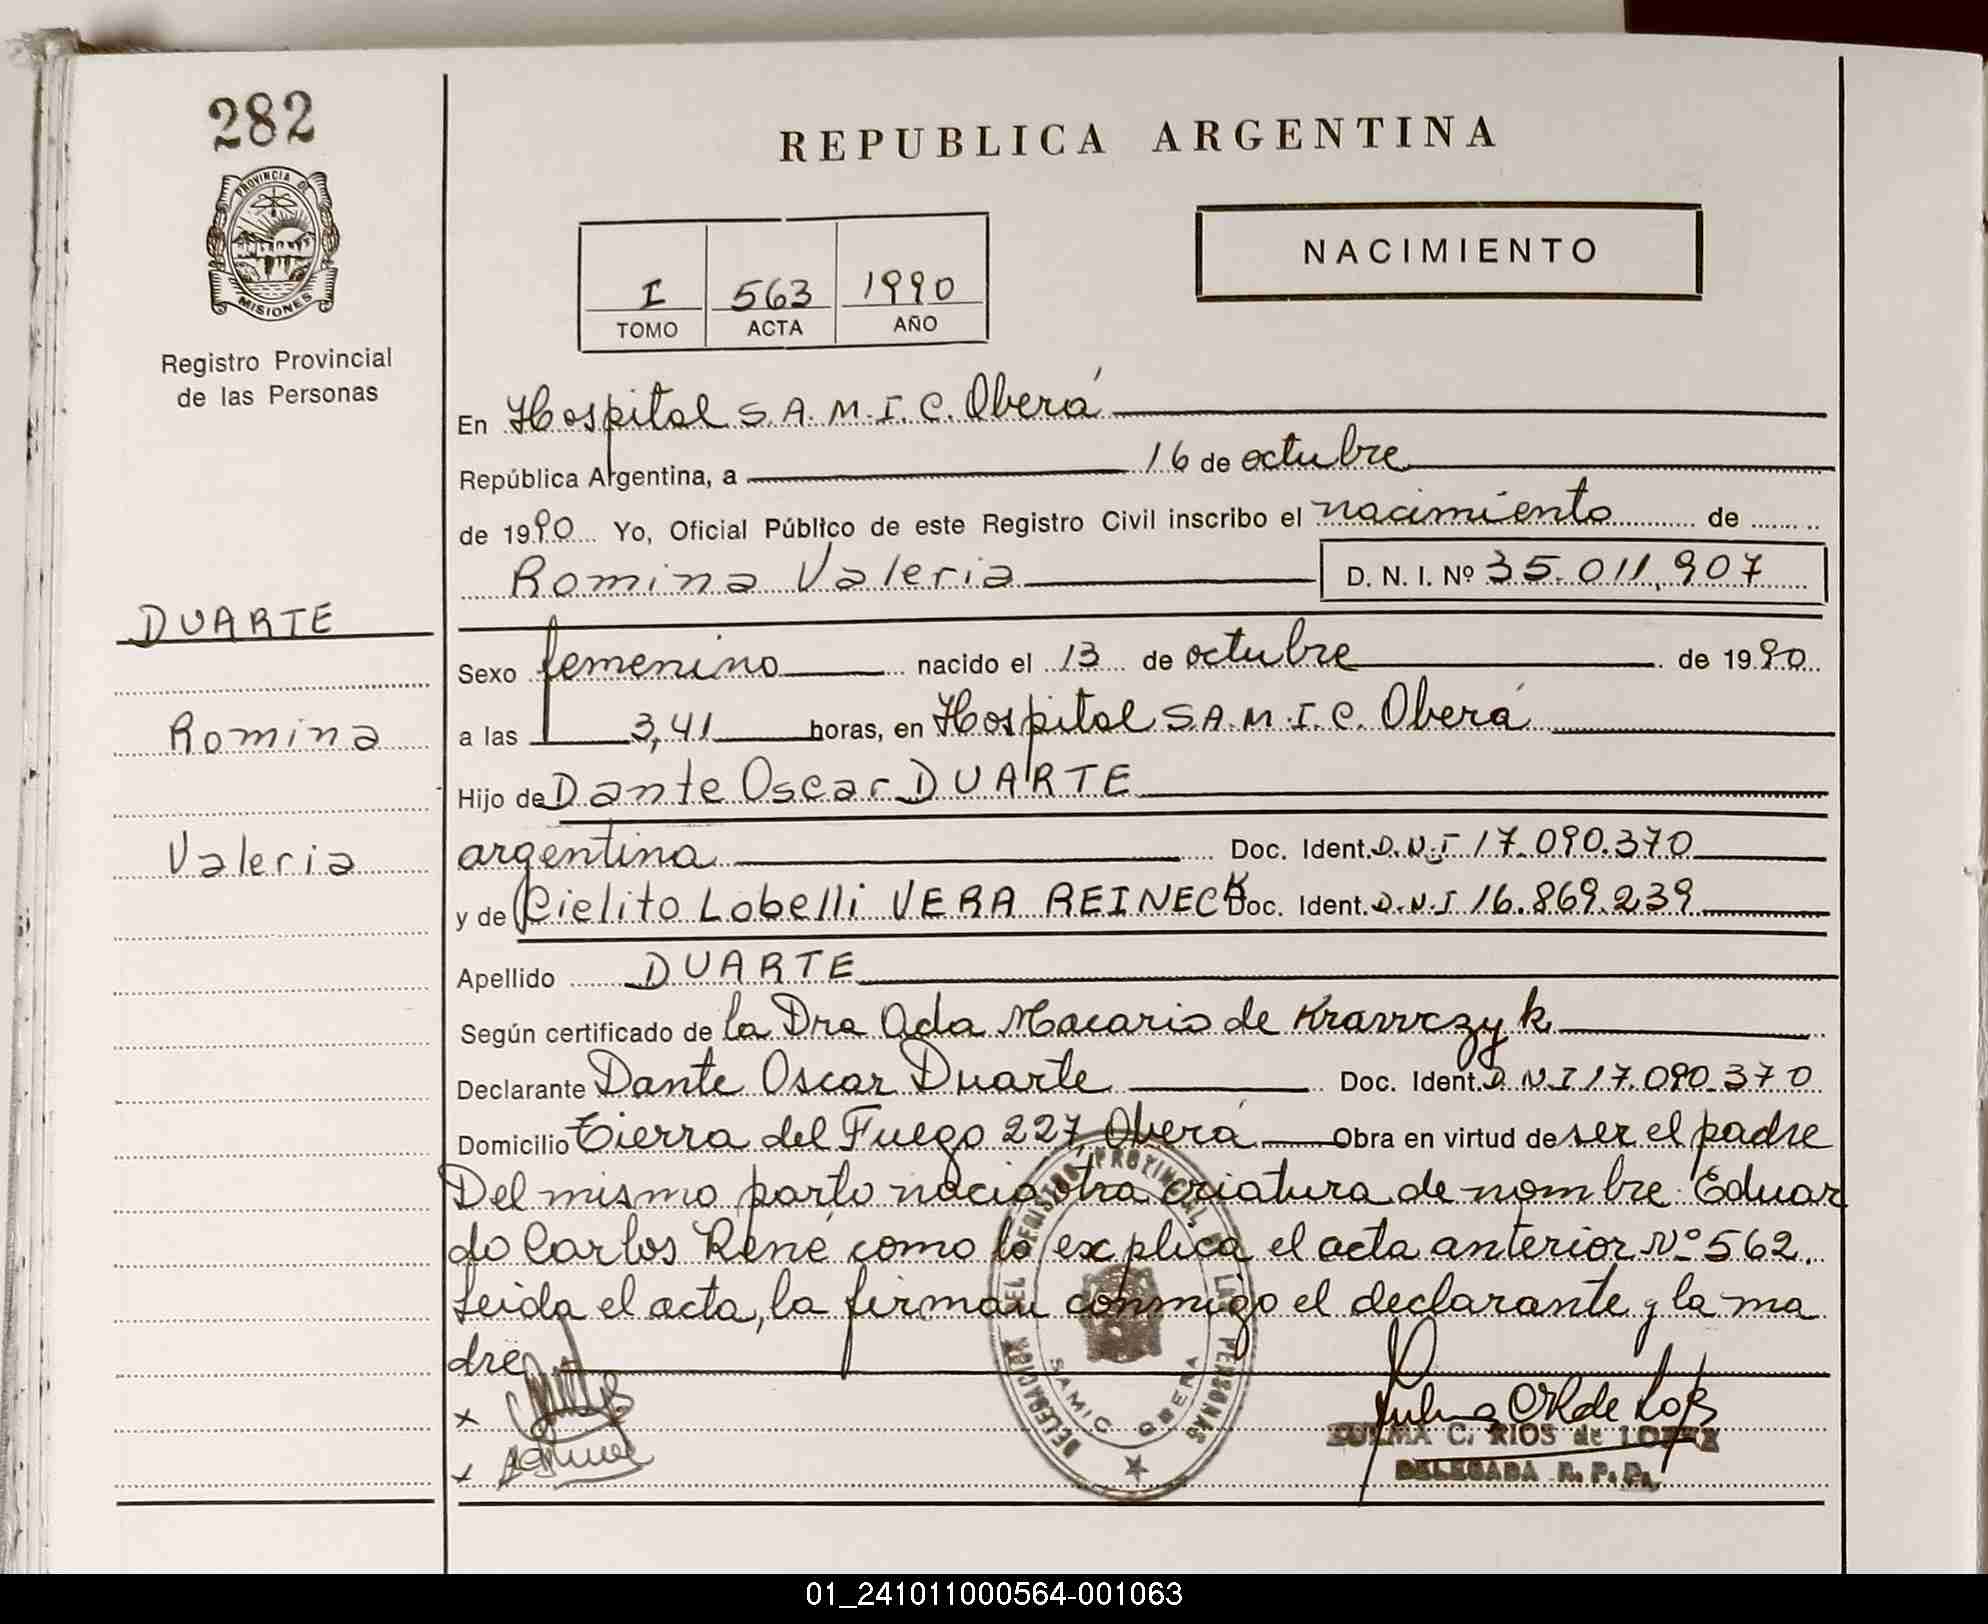 282
PROVINCIA DE
MISIONES
Registro Provincial
de las Personas
REPUBLICA ARGENTINA
NACIMIENTO
I 563 1990
TOMO ACTA AÑO
En Hospital S.A.M.I.C. Oberá
República Argentina, a 16 de octubre
de 1990 Yo, Oficial Público de este Registro Civil inscribo el nacimiento de
Romina Valeria D. N. I. Nº 35.011.907
DUARTE
Romina
Valeria
Sexo femenino nacido el 13 de octubre de 1990
a las 3,41 horas, en Hospital S.A.M.I.C. Oberá
Hijo de Dante Oscar DUARTE
argentina Doc. Ident. D.N.I 17.090.370
y de Cielito Lobelli VERA REINECK Doc. Ident. D.N.I 16.869.239
Apellido DUARTE
Según certificado de la Dra Ada Macario de Krawczyk
Declarante Dante Oscar Duarte Doc. Ident. D.N.I 17.090.370
Domicilio Tierra del Fuego 227 Oberá Obra en virtud de ser el padre
Del mismo parto nació otra criatura de nombre Eduar
do Carlos René como lo explica el acta anterior Nº 562.
Leida el acta, la firman conmigo el declarante y la ma
dre
x
x
DELEGACION DEL REGISTRO PROVINCIAL DE LAS PERSONAS
SAMIC OBERA
ZULMA C. RIOS de LOPEZ
DELEGADA R. P. P.
01_241011000564-001063